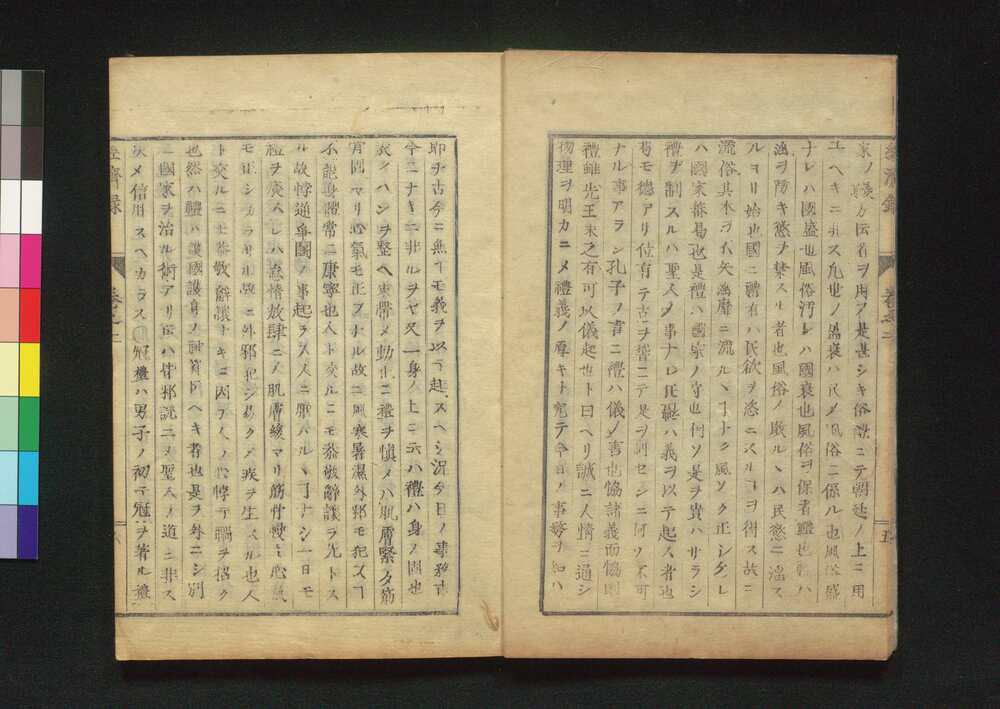 家ノ 輩カ伝者ヲ用フ是甚シキ俗禮ニテ朝廷ノ上ニ用
ユヘキニ非ス凡世ノ盛衰ハ民ノ風俗ニ係ル也風俗盛
ナレハ國盛也風俗汚レハ國衰也風俗ヲ保者禮也禮ハ
淫ヲ防キ慾ヲ禁スル者也風俗ノ敗ルヽハ民慾ニ淫ス
ルヨリ始也國ニ禮有ハ民欲ヲ恣ニスルヿヲ得ス故ニ
流俗其本ヲ不失淫靡ニ流ルヽヿナク風ソク正シケレ
ハ國家蕃昌也是禮ハ國家ノ守也何ソ是ヲ貴ハサラン
禮ヲ制スルハ聖人ノ事ナレ𪜈禮ハ義ヲ以テ起ス者也
苟モ德アリ位有テ古ヲ ニテ是ヲ制センニ何ソ不可
ナル事アラン孔子ノ言ニ禮ハ儀ノ書也協諸義而協則
禮雖先王未之有可以儀起也ト曰ヘリ誠ニ人情ニ通シ
物理ヲ明カニメ禮義ノ厚キト究テ今日ノ事務ヲ知ハ
即ヲ古今ニ無ヿモ義ヲ以テ起スヘシ況今日ノ事務古
今ニナキニ非ルヲヤ又一身ノ上ニテハ禮ハ身ノ固也
ハンヲ整ヘ衷帶メ動止ニ禮ヲ慎メハ肌膚緊タ筋
骨固マリ心氣モ正フナル故ニ風寒暑濕外邪モ犯スヿ
不能身體常ニ康寧也人ト交ルニモ恭敬辭讓ヲ先トス
ル故悖逆爭鬪ノ事起ラス人ニ順ハルヽヿナシ一日モ
禮ヲ廢スレハ怠情放肆ニメ肌膚緩マリ筋骨 心氣
モ正シカラサル故ニ外邪犯シ易クメ疾ヲ生スル也人
ト交ルニモ恭敬辭讓ナキニ因テ人ノ 悖テ禍ヲ招ク
也然ハ禮ハ護國護身ノ神符 ヘキ者也是ヲ外ニシ別
ニ國家ヲ治ル術アリト云ハ皆邪説ニメ聖人ノ道ニ非ス
決メ信用スヘカラス○冠禮ハ男子ノ初テ冠ヲ著ル禮